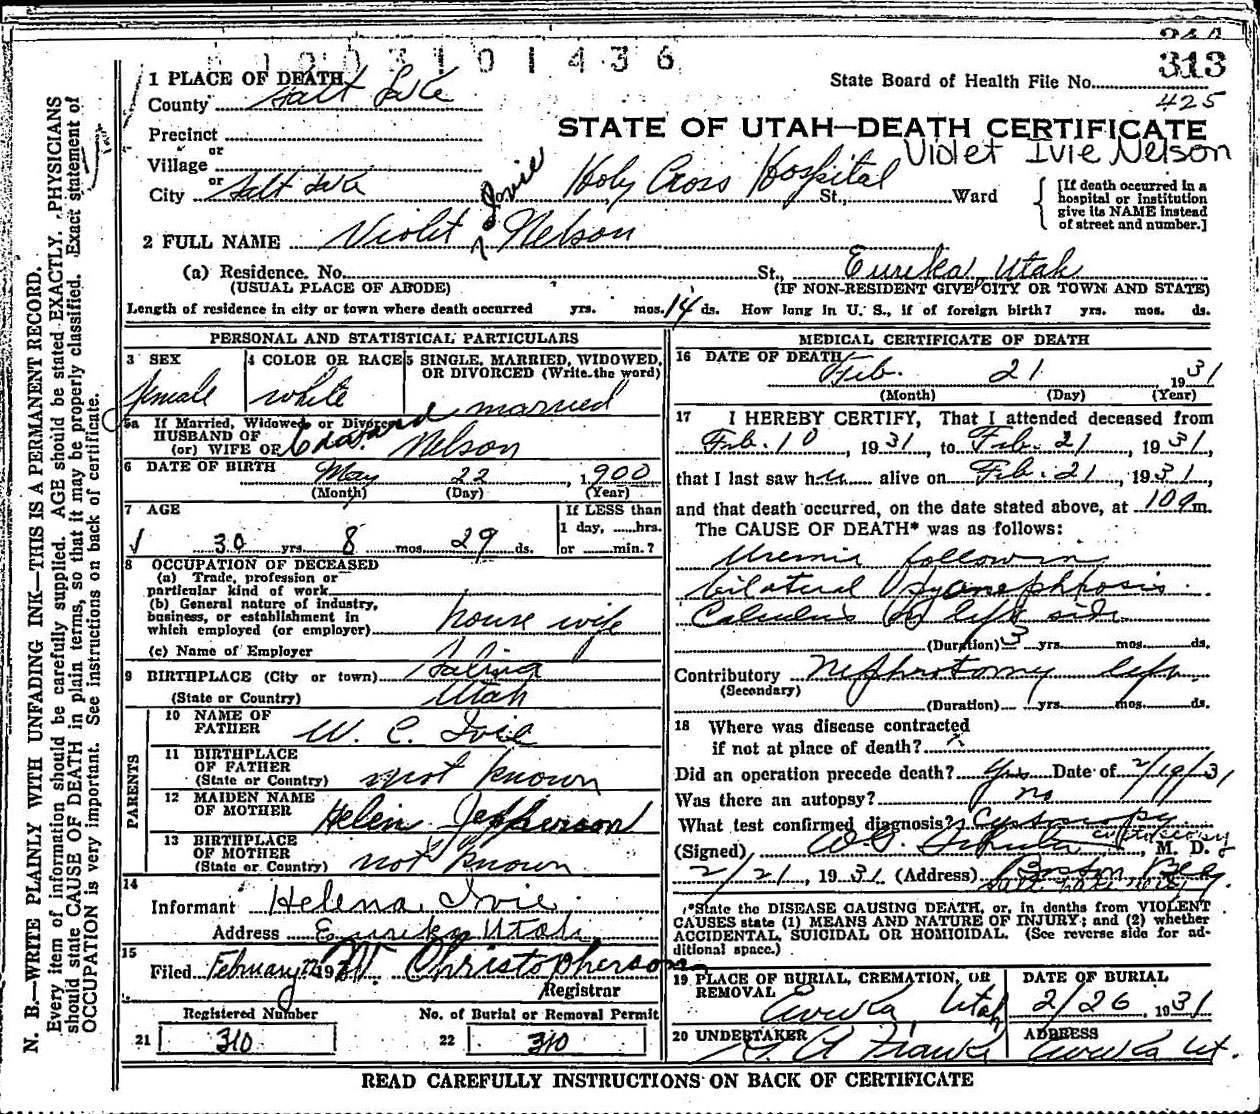 1003101436
313
State Board of Health File No.
425
1 PLACE OF DEATH
County Salt Lake
STATE OF UTAH—DEATH CERTIFICATE
Violet Ivie Nelson
Precinct
or
Village
or
City Salt Lake Holy Cross Hospital St., Ward
[If death occurred in a
hospital or institution
give its NAME instead
of street and number.]
Ivie
2 FULL NAME Violet Nelson
(a) Residence. No. St., Eureka, Utah
(USUAL PLACE OF ABODE) (IF NON-RESIDENT GIVE CITY OR TOWN AND STATE)
Length of residence in city or town where death occurred yrs. mos. 14 ds. How long in U. S., if of foreign birth? yrs. mos. ds.
PERSONAL AND STATISTICAL PARTICULARS
3 SEX 4 COLOR OR RACE 5 SINGLE, MARRIED, WIDOWED,
OR DIVORCED (Write the word)
female white married
5a If Married, Widowed or Divorced
HUSBAND OF
(or) WIFE OF Edward Nelson
6 DATE OF BIRTH May 22, 1900
(Month) (Day) (Year)
7 AGE If LESS than
1 day, hrs.
30 yrs. 8 mos. 29 ds. or min.?
8 OCCUPATION OF DECEASED
(a) Trade, profession or
particular kind of work
(b) General nature of industry,
business, or establishment in
which employed (or employer) house wife
(c) Name of Employer
9 BIRTHPLACE (City or town) Salina
(State or Country) Utah
PARENTS
10 NAME OF
FATHER W. C. Ivie
11 BIRTHPLACE
OF FATHER
(State or Country) not known
12 MAIDEN NAME
OF MOTHER Helen Jefferson
13 BIRTHPLACE
OF MOTHER
(State or Country) not known
14
Informant Helena Ivie
Address Eureka Utah
15
Filed February 193 Christopherson
Registrar
Registered Number No. of Burial or Removal Permit
21 310 22 310
MEDICAL CERTIFICATE OF DEATH
16 DATE OF DEATH Feb. 21 1931
(Month) (Day) (Year)
17 I HEREBY CERTIFY, That I attended deceased from
Feb. 10, 1931, to Feb. 21, 1931,
that I last saw her alive on Feb. 21, 1931,
and that death occurred, on the date stated above, at 10 a m.
The CAUSE OF DEATH* was as follows:
Uremia following
bilateral Pyonephrosis.
Calculus left side
(Duration) 3 yrs. mos. ds.
Contributory Nephrotomy left
(Secondary)
(Duration) yrs. mos. ds.
18 Where was disease contracted
if not at place of death?
Did an operation precede death? Yes Date of 2/19/31
Was there an autopsy? no
What test confirmed diagnosis? Cystoscopy
cystoscopy
(Signed) , M. D.
2/21, 1931 (Address) Boston Bldg.
Salt Lake City
*State the DISEASE CAUSING DEATH, or, in deaths from VIOLENT
CAUSES state (1) MEANS AND NATURE OF INJURY; and (2) whether
ACCIDENTAL, SUICIDAL OR HOMICIDAL. (See reverse side for ad-
ditional space.)
19 PLACE OF BURIAL, CREMATION, OR
REMOVAL Eureka Utah
DATE OF BURIAL
2/26, 1931
20 UNDERTAKER ADDRESS
A Franke Eureka Ut.
READ CAREFULLY INSTRUCTIONS ON BACK OF CERTIFICATE
N. B.—WRITE PLAINLY WITH UNFADING INK—THIS IS A PERMANENT RECORD.
Every item of information should be carefully supplied. AGE should be stated EXACTLY. PHYSICIANS
should state CAUSE OF DEATH in plain terms, so that it may be properly classified. Exact statement of
OCCUPATION is very important. See instructions on back of certificate.